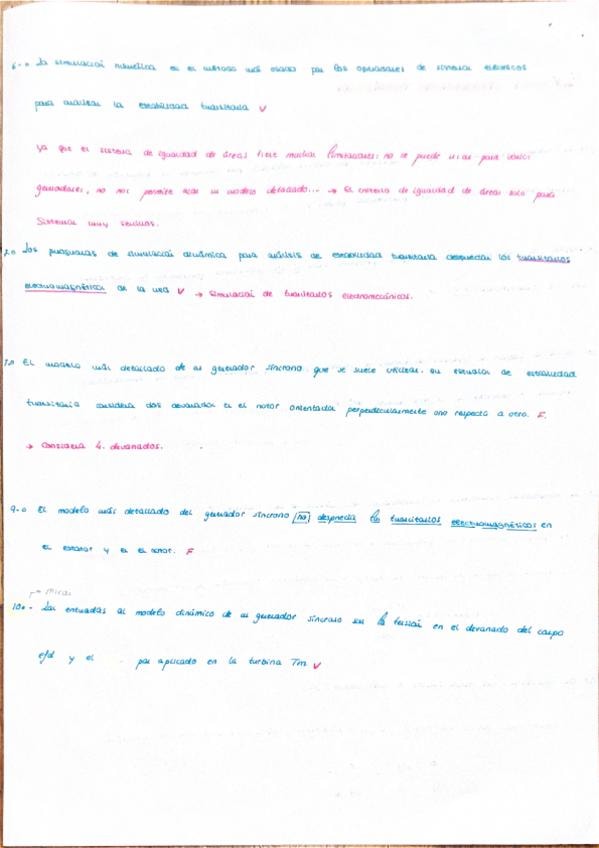 6.- La simulación numérica es el método más usado por los operadores de sistemas eléctricos
para analizar la estabilidad transitoria V
Ya que el sistema de igualdad de áreas tiene muchas limitaciones: no se puede usar para varios
generadores, no nos permite usar un modelo detallado... → El criterio de igualdad de áreas solo para
Sistemas muy sencillos.
7.- Los programas de simulación dinámica para análisis de estabilidad transitoria desprecian los transitorios
electromagnéticos en la red V → Simulación de transitorios electromecánicos.
El modelo más detallado de un generador síncrono que se suele utilizar en estudios de estabilidad
transitoria considera dos devanados en el rotor orientados perpendicularmente uno respecto a otro. F.
→ Considera 4 devanados.
9.- El modelo más detallado del generador síncrono no desprecia los transitorios electromagnéticos en
el estator y en el rotor. F
→ Mirar
10.- Las entradas al modelo dinámico de un generador síncrono son la tensión en el devanado del campo
efd y el par aplicado en la turbina Tm V